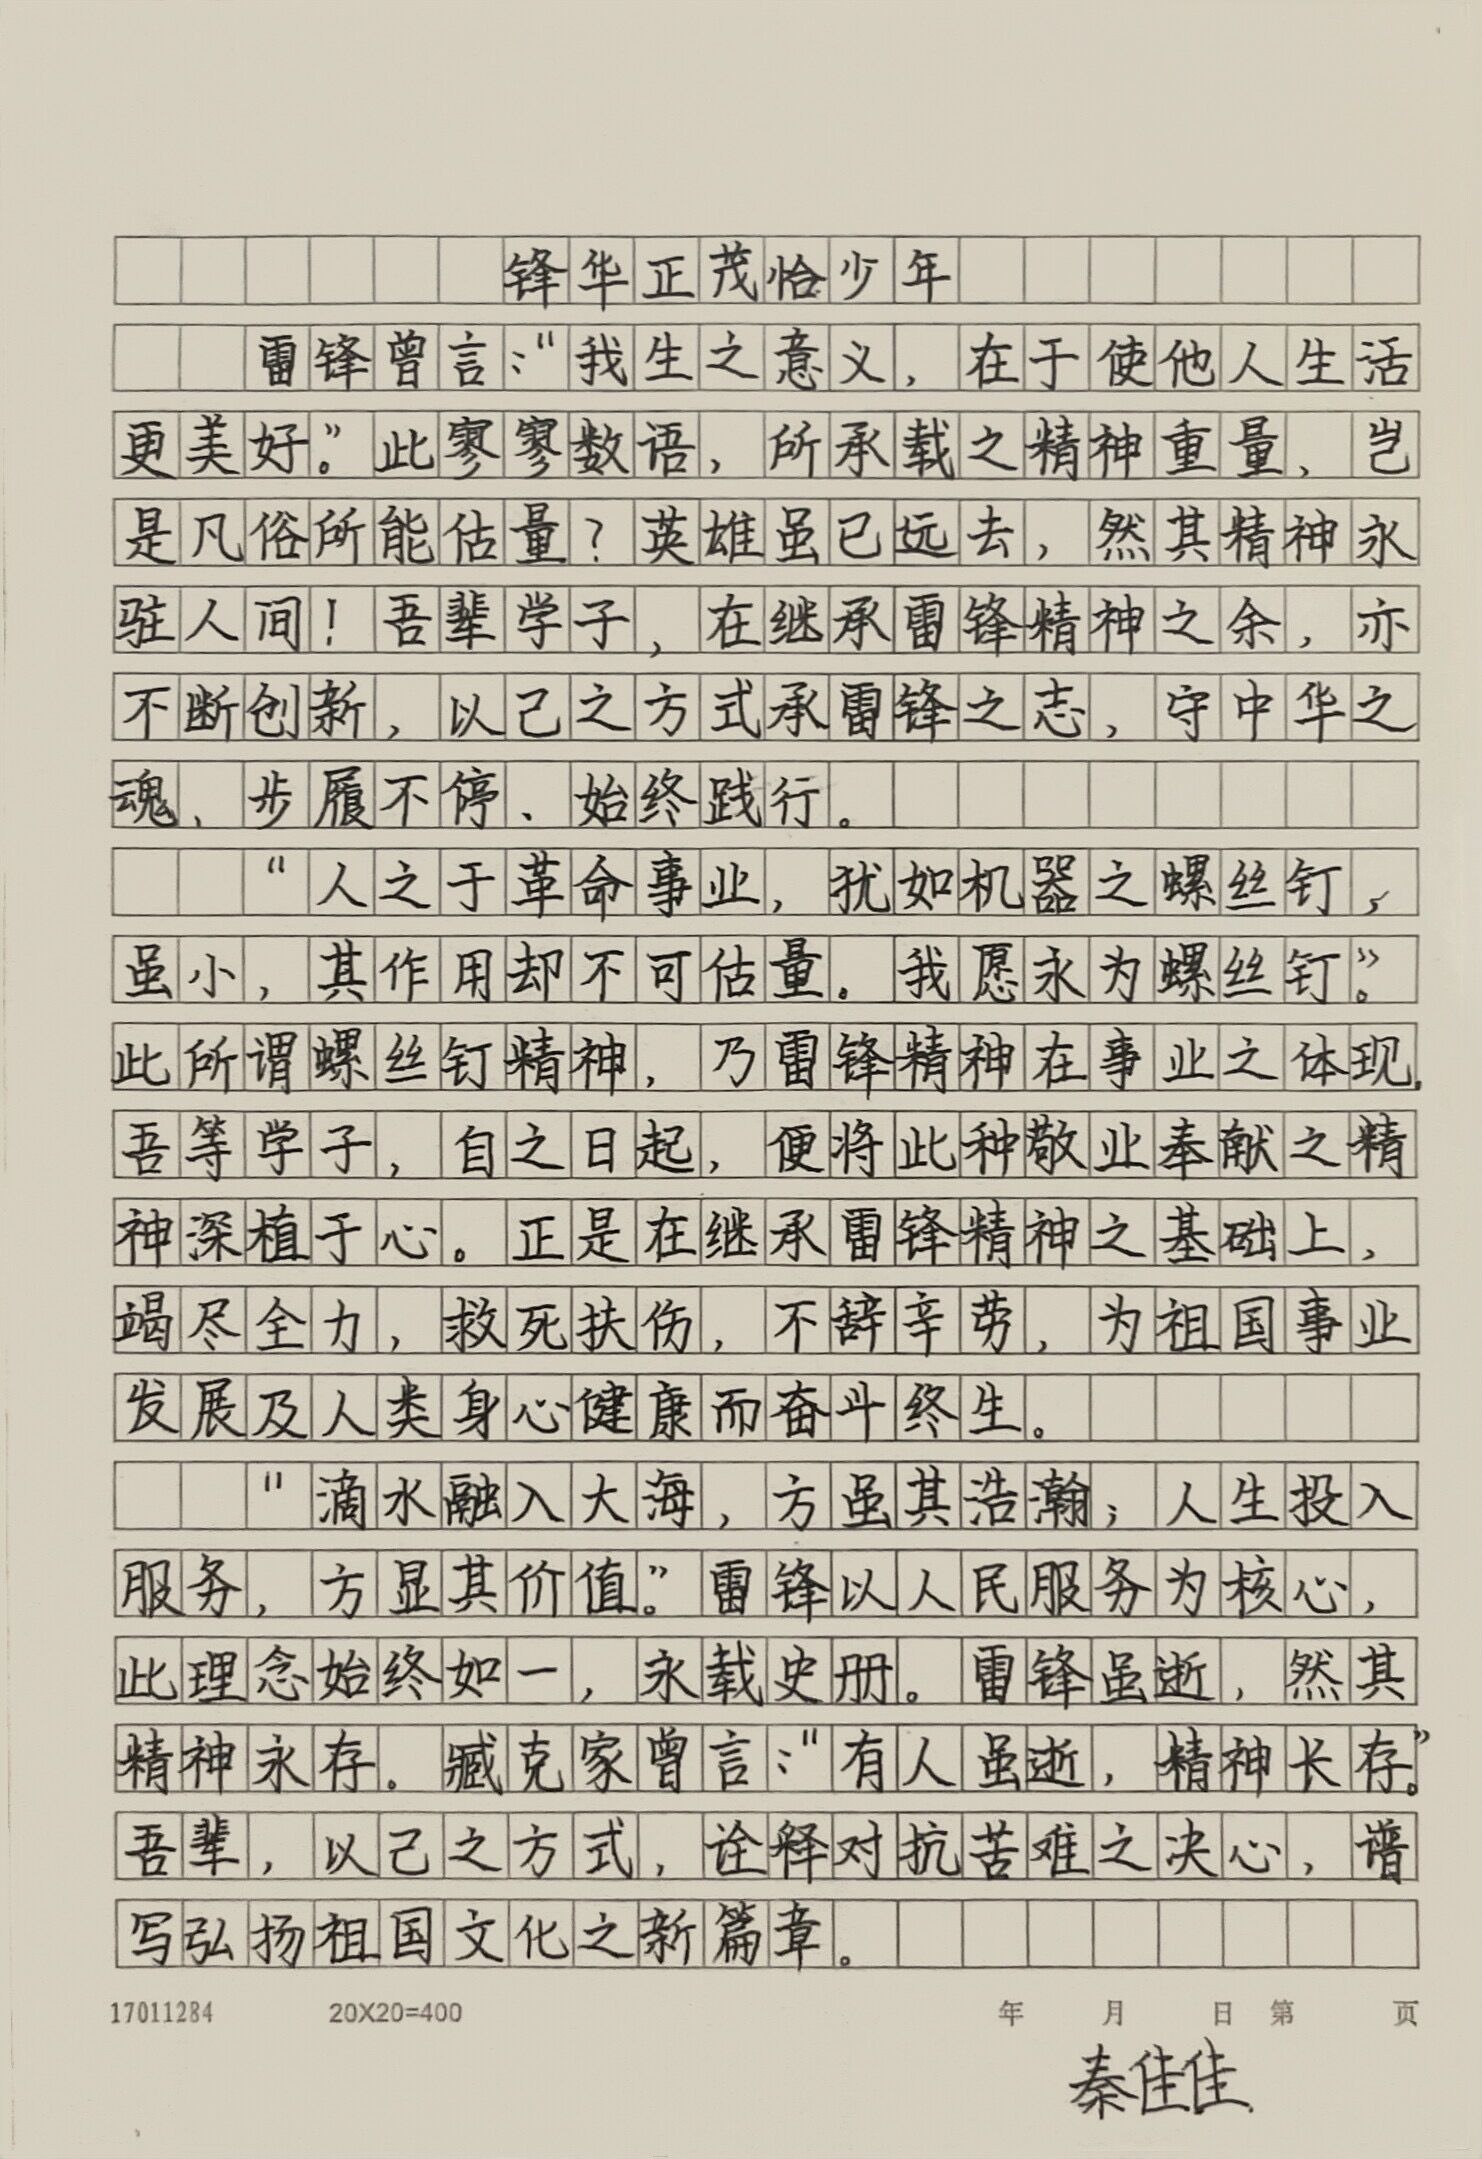 锋华正茂恰少年
雷锋曾言:“我生之意义，在于使他人生活
更美好。”此寥寥数语，所承载之精神重量，岂
是凡俗所能估量？英雄虽已远去，然其精神永
驻人间！吾辈学子，在继承雷锋精神之余，亦
不断创新，以己之方式承雷锋之志，守中华之
魂、步履不停、始终践行。
“人之于革命事业，犹如机器之螺丝钉，
虽小，其作用却不可估量。我愿永为螺丝钉。”
此所谓螺丝钉精神，乃雷锋精神在事业之体现，
吾等学子，自之日起，便将此种敬业奉献之精
神深植于心。正是在继承雷锋精神之基础上，
竭尽全力，救死扶伤，不辞辛劳，为祖国事业
发展及人类身心健康而奋斗终生。
“滴水融入大海，方虽其浩瀚；人生投入
服务，方显其价值。”雷锋以人民服务为核心，
此理念始终如一，永载史册。雷锋虽逝，然其
精神永存。臧克家曾言:“有人虽逝，精神长存。”
吾辈，以己之方式，诠释对抗苦难之决心，谱
写弘扬祖国文化之新篇章。
17011284 20X20=400 年 月 日 第 页
秦佳佳